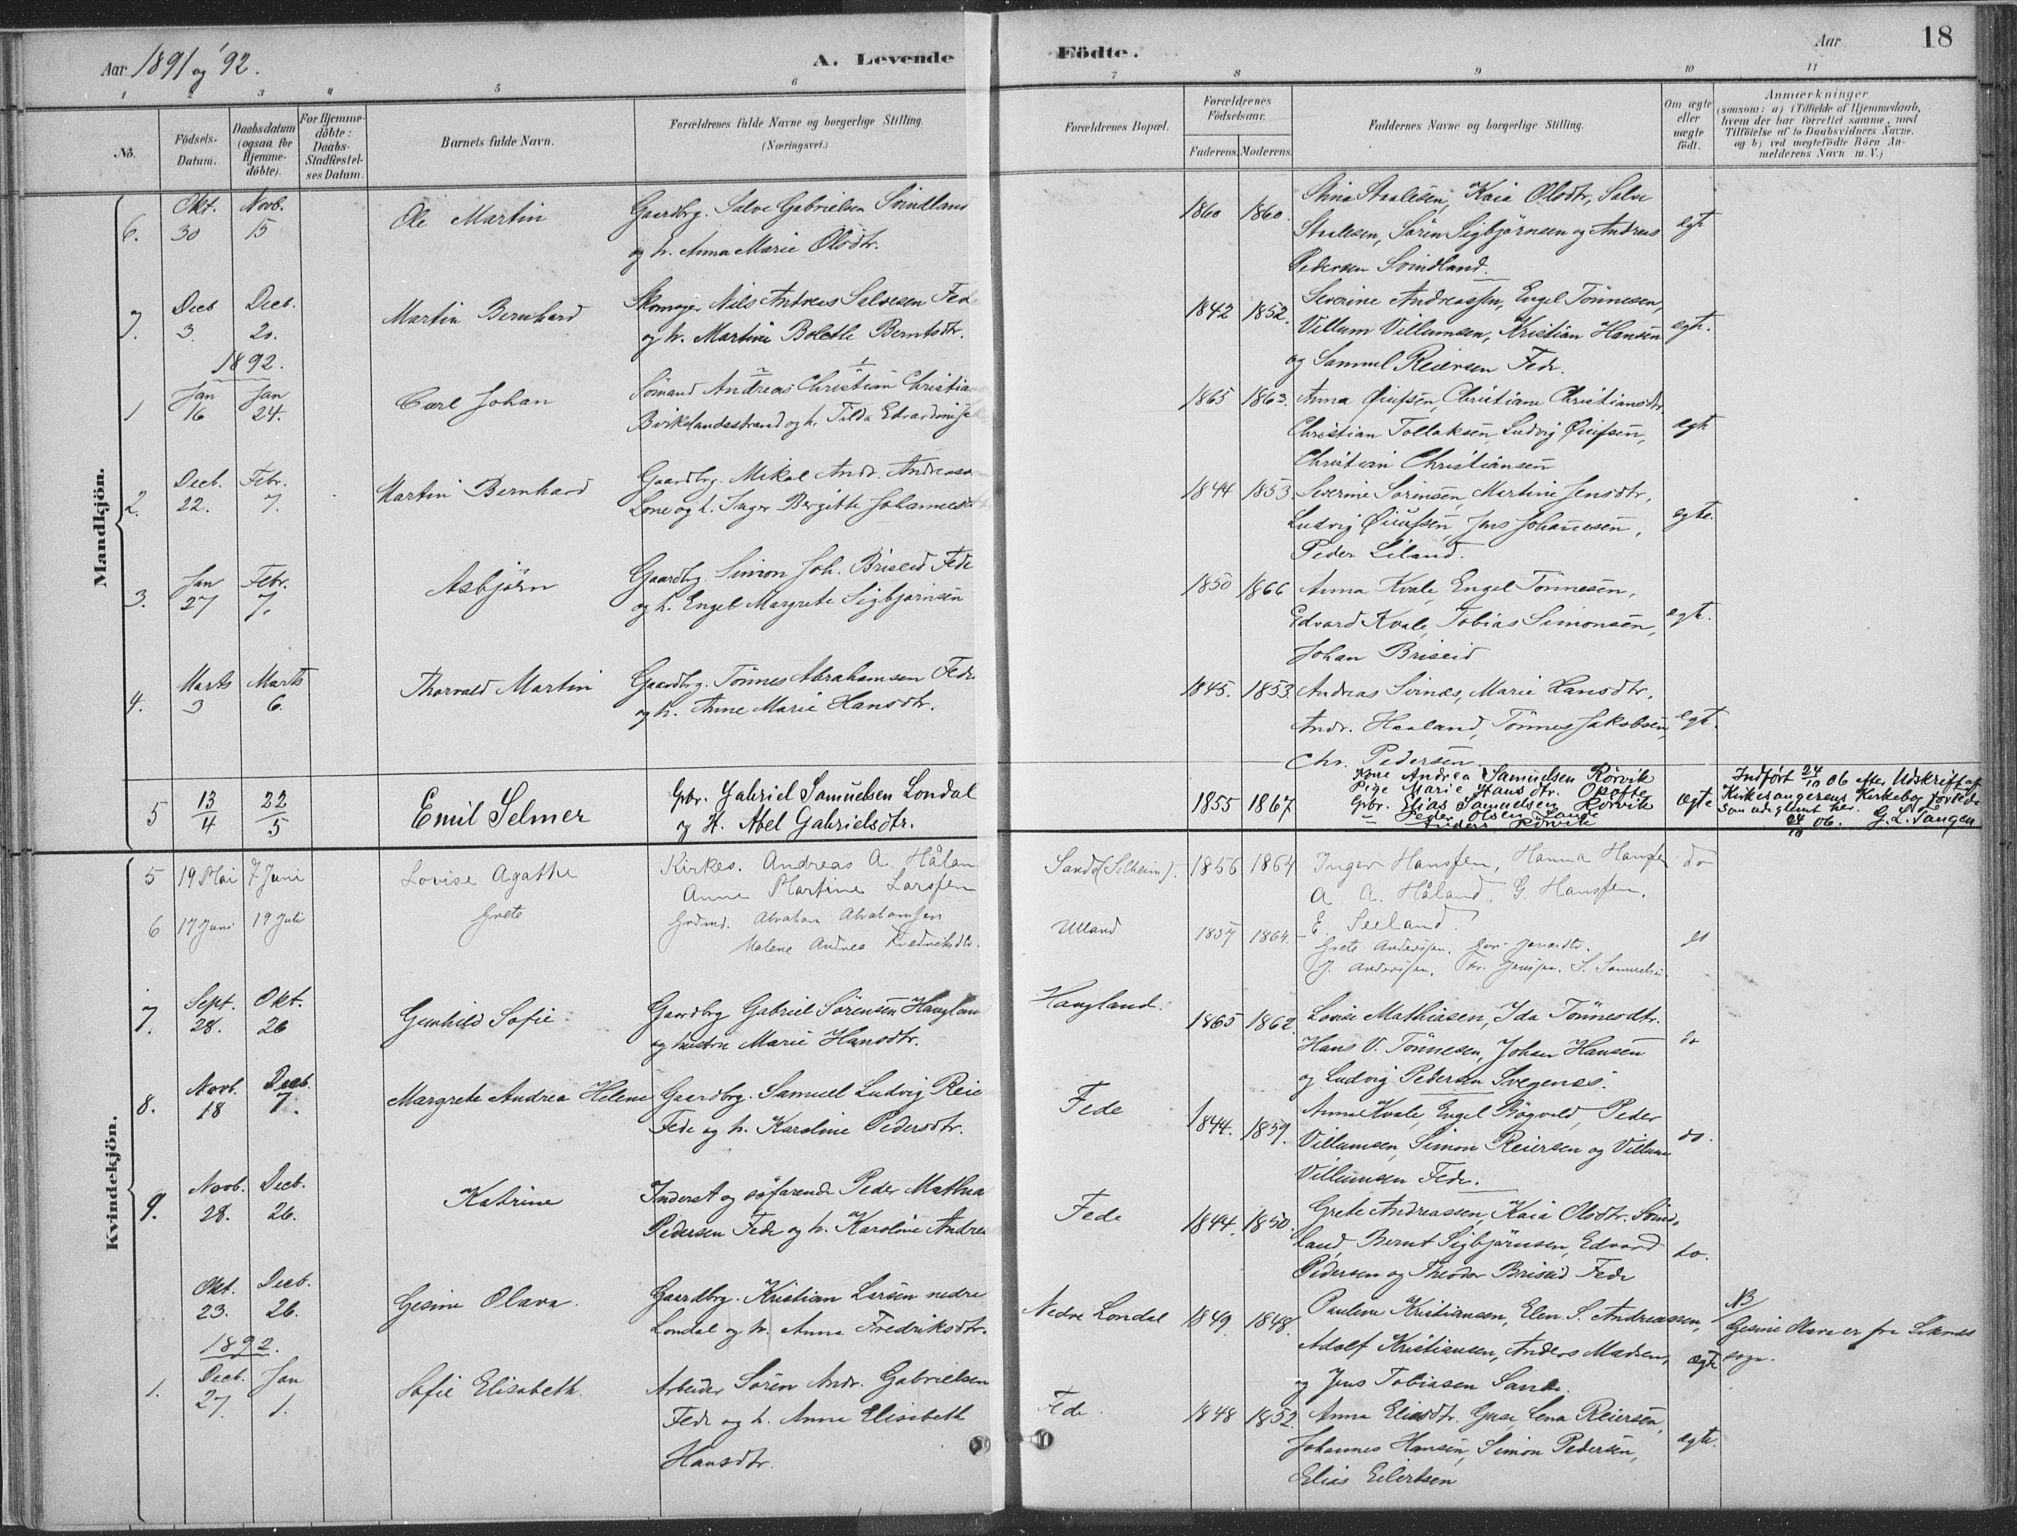 Aar 1891 og '92.
A. Levende Födte.
Aar
18
1 2 3 4 5 6 7 8 9 10 11
No.
Födsels-Datum.
Daabsdatum (ogsaa for Hjemme-döbte).
For Hjemme-döbte: Daabs-Stadfæstel-ses Datum.
Barnets fulde Navn.
Forældrenes fulde Navne og borgerlige Stilling.
(Næringsvei.)
Forældrenes Bopæl.
Forældrenes Födselsaar.
Faderens. Moderens.
Faddernes Navne og borgerlige Stilling.
Om ægte eller uægte födt.
Anmærkninger
(saasom: a) i Tilfælde af Hjemmedaab,
hvem der har forrettet samme, med
Tilföielse af to Daabsvidners Navne.
og b) ved uægtefödte Börn An-
melderens Navn m. V.)
Mandkjön.
6. Okt. 30 Novb. 15 Ole Martin
Gaardbrg. Salve Gabrielsen Svindland
og h. Anna Marie Olsdtr.
1860 1860.
Stina Staalesen, Kaia Olsdtr, Salve
Staalesen, Sören Sigbjörnsen og Andreas
Pedersen Svindland.
egte
7. Decb 3. Decb. 20. Martin Bernhard
Skomager Nils Andreas Salvesen Fede
og h. Martine Bolette Berntsdtr.
1842 1852.
Severine Andreassen, Engel Tönnesen,
Villum Villumsen, Kristian Hansen
og Samuel Reiersen Fede.
egte.
1892.
1 Jan 16 Jan 24. Carl Johan
Sömand Andreas Christian Christia
Birkelandsstrand og h. Tilda Edvardine
1865 1863.
Anna Öiufsen, Christiane Christiansdtr
Christian Tollaksen, Ludvig Öiufsen,
Christian Christiansen
egte
2. Decb. 22. Febr. 7. Martin Bernhard
Gaardbrg. Mikal Andr. Andreas
Lone og h. Inger Bergitte Johannesd
1844 1853.
Severine Sörensen, Martine Jensdtr,
Ludvig Öiufsen, Jens Johanesen,
Peder Liland.
egte.
3. Jan 27 Febr. 7. Asbjörn
Gaardbrg. Simon Joh. Briseid Fede
og h. Engel Margrete Sigbjörnsen
1850 1866
Anna Kvale, Engel Tönnesen,
Edvard Kvale, Tobias Simonsen,
Johan Briseid
egte.
4. Marts 3 Marts 6. Thorvald Martin
Gaardbrg. Tönnes Abrahamsen Fede
og h. Anne Marie Hansdtr.
1845. 1853.
Andreas Svinas, Marie Hansdtr,
Andr. Haaland, Tönnes Jakobsen,
Chr. Pedersen
egte.
5 13/4 22/5 Emil Selmer
Gbr. Gabriel Samuelsen Londal
og H. Abel Gabrielsdtr.
1855 1867.
Kone Andrea Samuelsen Rörvik
Pige Marie Hansdtr. Opofte
Gbr. Elias Samuelsen Rörvik
" Peder Olsen Sande
Rörvik
ægte
Indfört 24/10 06 efter Udskrift af
Kirkesangerens Kirkebog for Fede
som udeglemt her.
24/10 06. G. L. Tangen
Kvindekjön.
5 19 Mai 7 Juni Lovise Agathe
Kirkes. Andreas A. Hålan
Anne Martine Larssen
Sande (Solheim). 1856 1864
Inger Hanssen, Hanna Hanssen
A. A. Håland, G. Hanssen,
E. Seeland.
do
6 17 Juni 19 Juli Grete
Grdmd. Abraham Abrahamsen
Malene Andrea Fredriksdtr.
Ulland 1857 1864.
Grete Anderssen,
J. Anderssen, Fr. Jenssen, S. Samuelsen
do
7. Sept. 28. Okt. 26 Gunhild Sofie.
Gaardbrg Gabriel Sörensen Hauglan
og hustru Marie Hansdtr.
Haugland. 1865 1862.
Lovise Mathiasen, Ida Tönnesdtr.
Hans V. Tönnesen, Johan Hansen
og Ludvig Pedersen Svegenes.
do
8. Novb. 18 Decb. 7. Margrete Andrea Helene
Gaardbrg. Samuel Ludvig Reie
Fede og h. Karoline Pedersdtr.
Fede 1844. 1859.
Anna Kvale, Engel Bögvald, Peder
Villumsen, Simon Reiersen og Villum
Villumsen Fede.
do.
9. Novb. 28. Decb. 26. Katrine
Inderst og söfarende Peder Mathia
Pedersen Fede og h. Karoline Andrea
Fede 1844. 1850.
Grete Andreassen, Kaia Olsdtr. Svind-
land, Bernt Sigbjörnsen, Edvard
Pedersen og Theodor Briseid Fede
do.
Okt. 23. Decb. 26. Gesine Olava.
Gaardbrg. Kristian Larsen nedre
Londal og h. Anna Fredriksdtr.
Nedre Londal 1849. 1848.
Pauline Kristiansen, Elen S. Andreassen,
Adolf Kristiansen, Anders Madsen,
og Jens Tobiasen Sande.
ægte
NB
Gesine Olava er fra Liknes
sogn.
1892.
1. Decb. 27. Jan 1. Sofie Elisabeth.
Arbeider Sören Andr. Gabrielsen
Fede og h. Anna Elisabeth
Hansdtr.
Fede. 1848 1852.
Anna Eliasdtr. Guse, Lena Reiersen,
Johannes Hansen, Simon Pedersen,
Elias Eilertsen
egte.